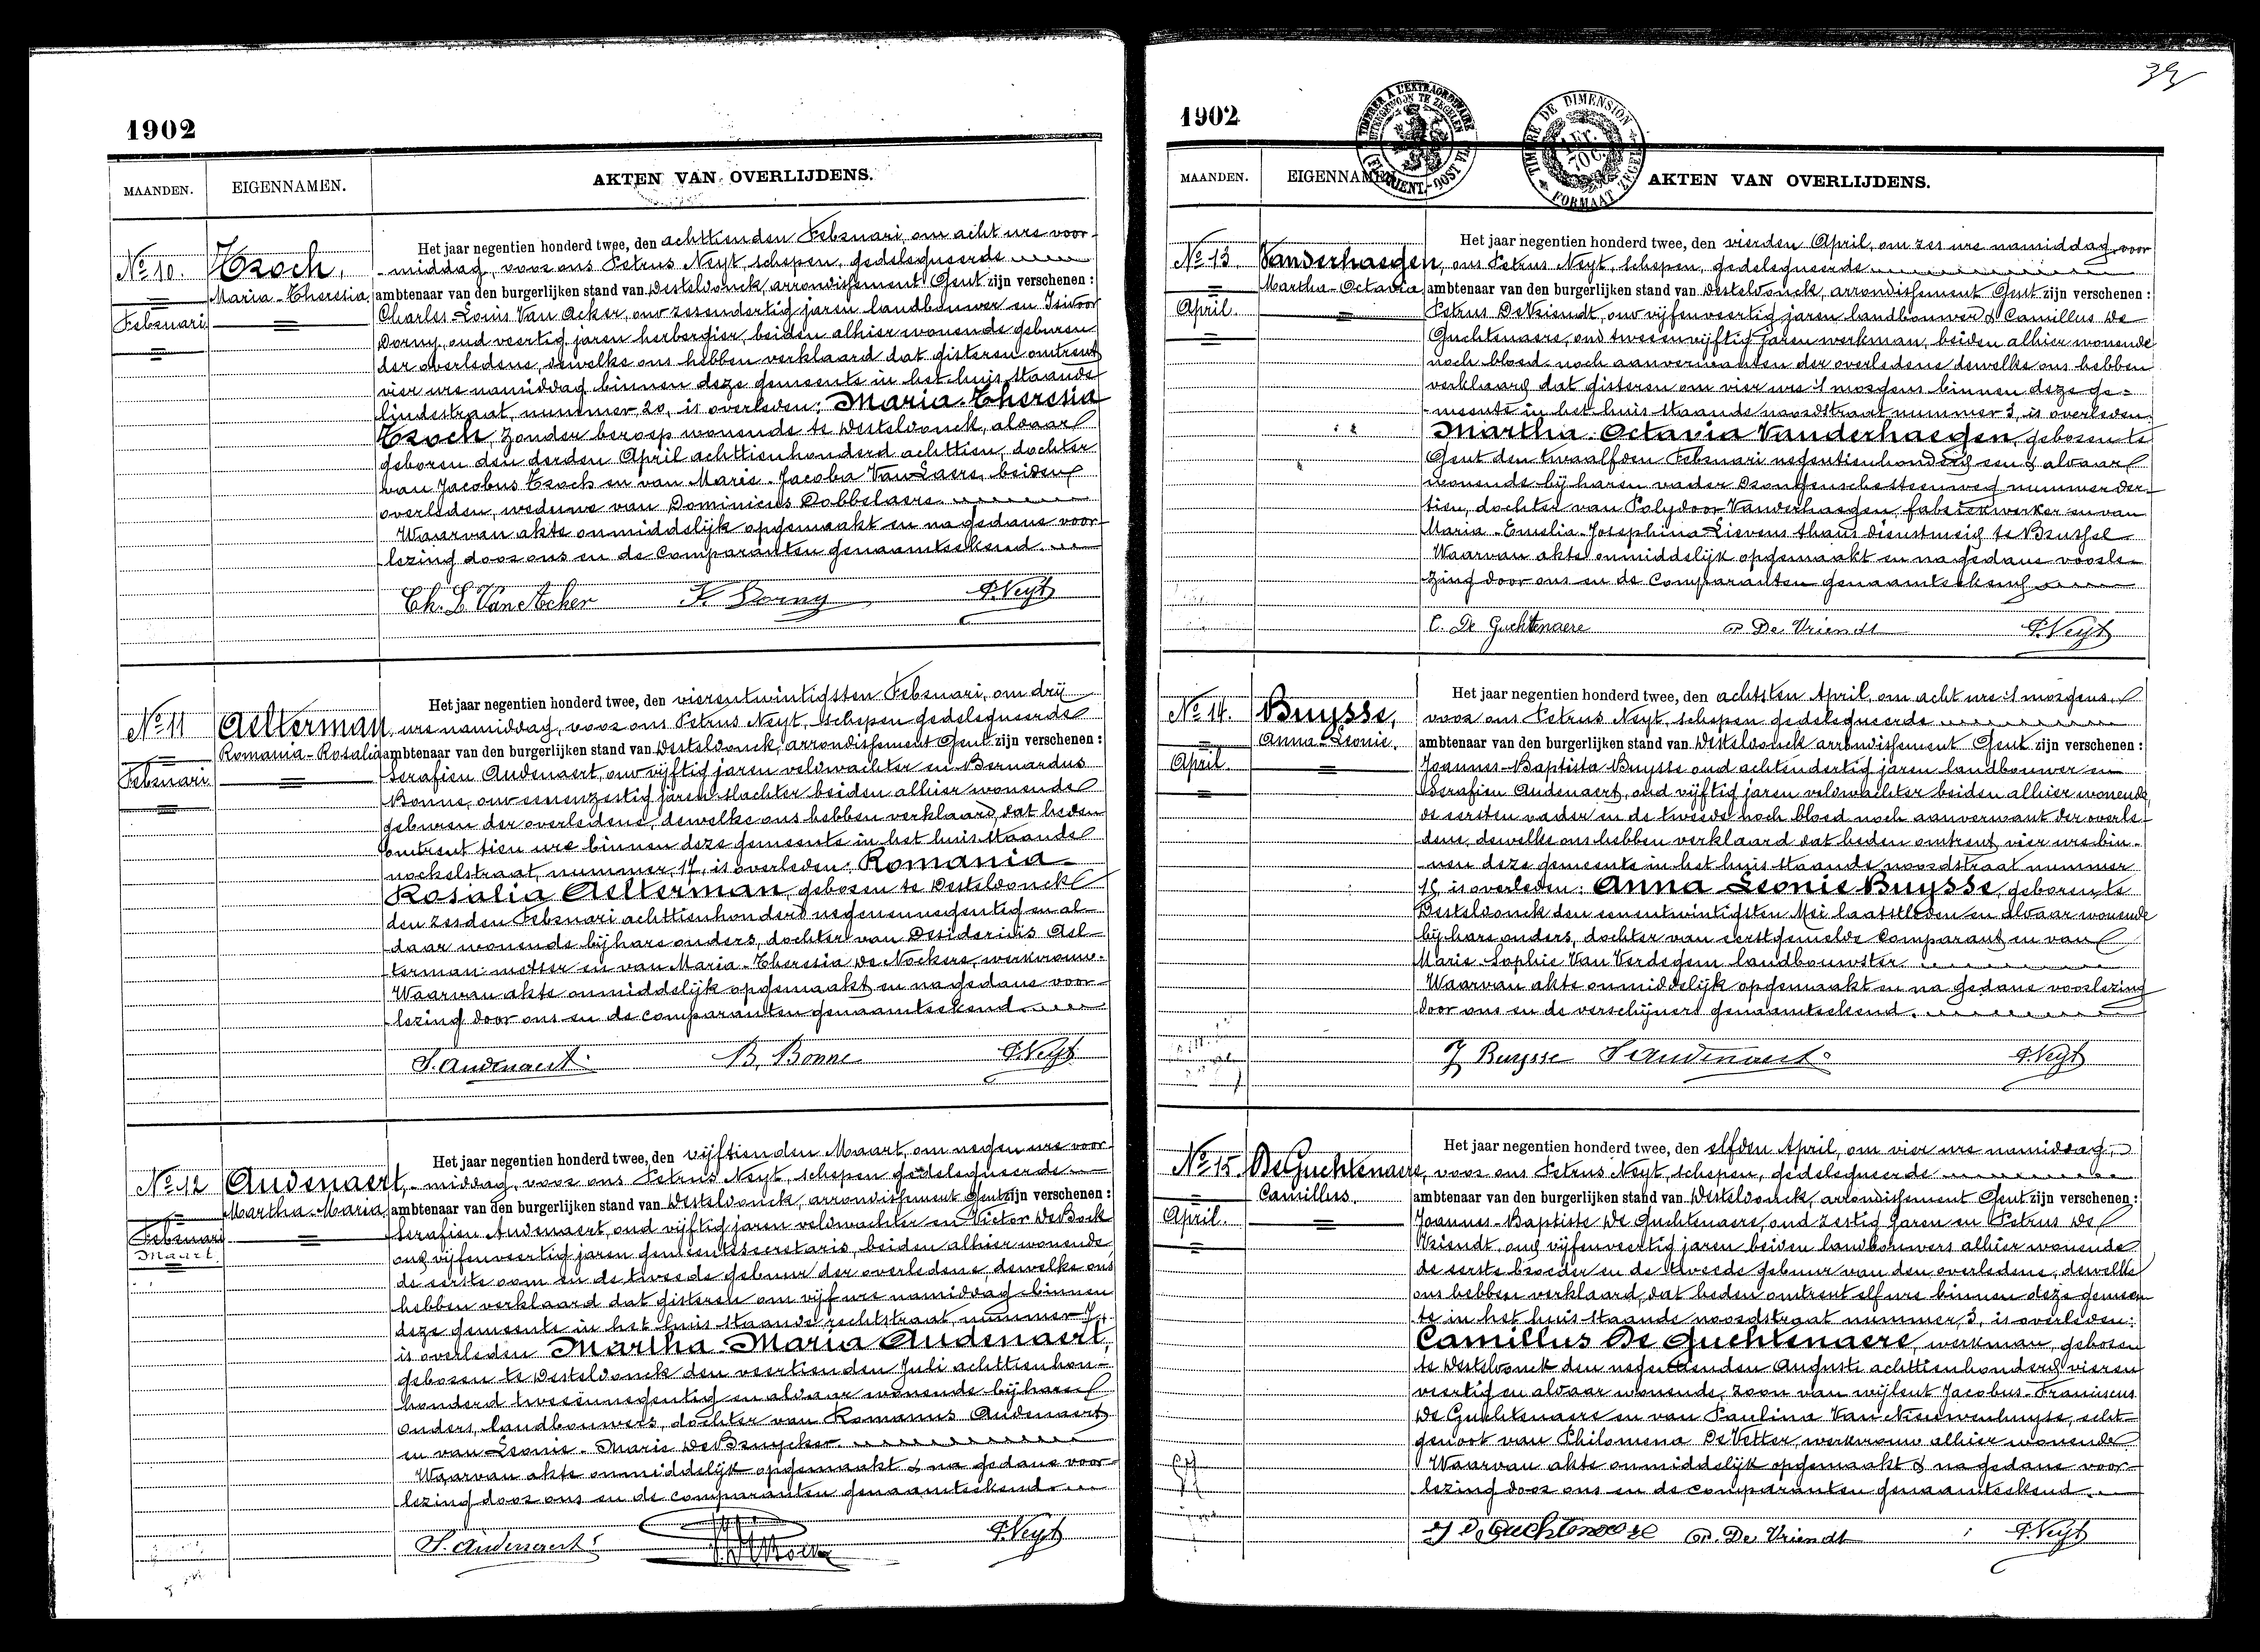 1902
MAANDEN. EIGENNAMEN. AKTEN VAN OVERLIJDENS.
No 10. Tzoch,
Maria-Theresia
Februari
Het jaar negentien honderd twee, den achttienden Februari, om acht ure voor-
middag, voor ons Petrus Neyt, schepen, gedelegueerde
ambtenaar van den burgerlijken stand van Desteldonck, arrondissement Gent zijn verschenen :
Charles-Louis Van Acker, oud zessendertig jaren landbouwer en Isidoor
Dorny, oud veertig jaren herbergier, beiden alhier wonende geburen
der overledene, dewelke ons hebben verklaard dat gisteren omtrent
vier ure namiddag binnen deze gemeente in het huis staande
lindestraat, nummer, 20, is overleden: Maria-Theresia
Tzoch, zonder beroep wonende te Desteldonck, aldaar
geboren den derden April achttienhonderd achttien, dochter
van Jacobus Tzoch en van Marie-Jacoba Van Laere, beiden
overleden, weduwe van Dominicus Dobbelaere
Waarvan akte onmiddelijk opgemaakt en na gedane voor-
lezing door ons en de Comparanten genaamteekend
Ch. L. Van Acker Dorny P. Neyt
No 11 Aelterman
Romania-Rosalia
Februari
Het jaar negentien honderd twee, den vierentwintigsten Februari, om drij
ure namiddag, voor ons Petrus Neyt, schepen gedelegueerde
ambtenaar van den burgerlijken stand van Desteldonck, arrondissement Gent zijn verschenen :
Serafien Audenaert, oud vijftig jaren veldwachter en Bernardus
Bonne, oud eenenzestig jaren slachter beiden alhier wonende
geburen der overledene, dewelke ons hebben verklaard, dat heden
omtrent tien ure binnen deze gemeente in het huis staande
nockelstraat, nummer, 17, is overleden: Romania-
Rosalia Aelterman, geboren te Desteldonck
den zesden Februari achttienhonderd negenennegentig en al-
daar wonende bij hare ouders, dochter van Desiderius Ael-
terman metser en van Maria-Theresia De Nockere, werkvrouw.
Waarvan akte onmiddelijk opgemaakt en na gedane voor-
lezing door ons en de comparanten genaamteekend
S. Audenaert B. Bonne P. Neyt
No 12 Audenaert,
Martha-Maria
Februari
Maart.
Het jaar negentien honderd twee, den vijftienden Maart, om negen ure voor-
middag, voor ons Petrus Neyt, schepen gedelegueerde
ambtenaar van den burgerlijken stand van Desteldonck, arrondissement Gent zijn verschenen :
Serafien Audenaert, oud vijftig jaren veldwachter en Victor De Bock
oud vijfenveertig jaren gemeentesecretaris, beiden alhier wonende,
de eerste oom en de tweede gebuur der overledene, dewelke ons
hebben verklaard dat gisteren om vijf ure namiddag binnen
deze gemeente in het huis staande rechtstraat, nummer 7,
is overleden Martha-Maria Audenaert,
geboren te Desteldonck den veertienden Juli achttienhon-
honderd tweeënnegentig en aldaar wonende bij haren
ouders, landbouwers, dochter van Romanus Audenaert
en van Leonie-Marie De Bruycker
Waarvan akte onmiddelijk opgemaakt & na gedane voor-
lezing door ons en de comparanten genaamteekend
S. Audenaert P. Neyt
1902
MAANDEN. EIGENNAMEN. AKTEN VAN OVERLIJDENS.
No 13. Vanderhaegen,
Martha-Octavia
April.
Het jaar negentien honderd twee, den vierden April, om zes ure namiddag, voor
ons Petrus Neyt, schepen, gedelegueerde
ambtenaar van den burgerlijken stand van Desteldonck, arrondissement Gent zijn verschenen :
Petrus De Vriendt, oud vijfenveertig jaren landbouwer & Camillus De
Guchtenaere, oud tweeënvijftig jaren werkman, beiden alhier wonende
noch bloed noch aanverwanten der overledene dewelke ons hebben
verklaard dat gisteren om vier ure 's morgens binnen deze ge-
meente in het huis staande noordstraat nummer 3, is overleden:
Martha-Octavia Vanderhaegen, geboren te
Gent den twaalfden Februari negentienhonderd een & aldaar
wonende bij haren vader Drongenschesteenweg nummer der-
tien, dochter van Polydoor Vanderhaegen, fabriekwerker en van
Maria-Emelia-Josephina Lievens thans dienstmeid te Brussel
Waarvan akte onmiddelijk opgemaakt en na gedane voorle-
zing door ons en de Comparanten genaamteekend
C. De Guchtenaere P. De Vriendt P. Neyt
No 14. Buysse,
Anna-Leonie,
April.
Het jaar negentien honderd twee, den achtsten April, om acht ure 's morgens,
voor ons Petrus Neyt, schepen gedelegueerde
ambtenaar van den burgerlijken stand van Desteldonck arrondissement Gent zijn verschenen :
Joannes-Baptista Buysse oud achtendertig jaren landbouwer en
Serafien Audenaert, oud vijftig jaren veldwachter beiden alhier wonende,
de eersten vader en de tweede noch bloed noch aanverwant der overle-
dene, dewelke ons hebben verklaard dat heden omtrent vier ure bin-
nen deze gemeente in het huis staande noordstraat nummer
is overleden: Anna Leonie Buysse, geboren te
Desteldonck den eenentwintigsten Mei laatstleden en aldaar wonende
bij hare ouders, dochter van eerstgemelde Comparant en van
Marie-Sophie Van Verdegem landbouwster
Waarvan akte onmiddelijk opgemaakt en na gedane voorlezing
door ons en de verschijners genaamteekend.
J Buysse S Audenaert P. Neyt
No 15 De Guchtenaere,
Camillus.
April.
Het jaar negentien honderd twee, den elfden April, om vier ure namiddag,
voor ons Petrus Neyt, schepen, gedelegueerde
ambtenaar van den burgerlijken stand van Desteldonck, arrondissement Gent zijn verschenen :
Joannes-Baptiste De Guchtenaere, oud zestig jaren en Petrus De
Vriendt, oud vijfenveertig jaren beiden landbouwers alhier wonende
de eerste broeder en de tweede gebuur van den overledene, dewelke
ons hebben verklaard, dat heden omtrent elf ure binnen deze gemeen
te in het huis staande noordstraat nummer, 3, is overleden:
Camillus De Guchtenaere, werkman, geboren
te Desteldonck den negentienden Auguste achttienhonderd vieren
veertig en aldaar wonende, zoon van wijlent Jacobus-Franciscus
De Guchtenaere en van Paulina Van Nieuwenhuyse, echt-
genoot van Philomena De Vetter, werkvrouw alhier wonende
Waarvan akte onmiddelijk opgemaakt & na gedane voor-
lezing door ons en de comparanten genaamteekend.
De Guchtenaere P. De Vriendt P. Neyt